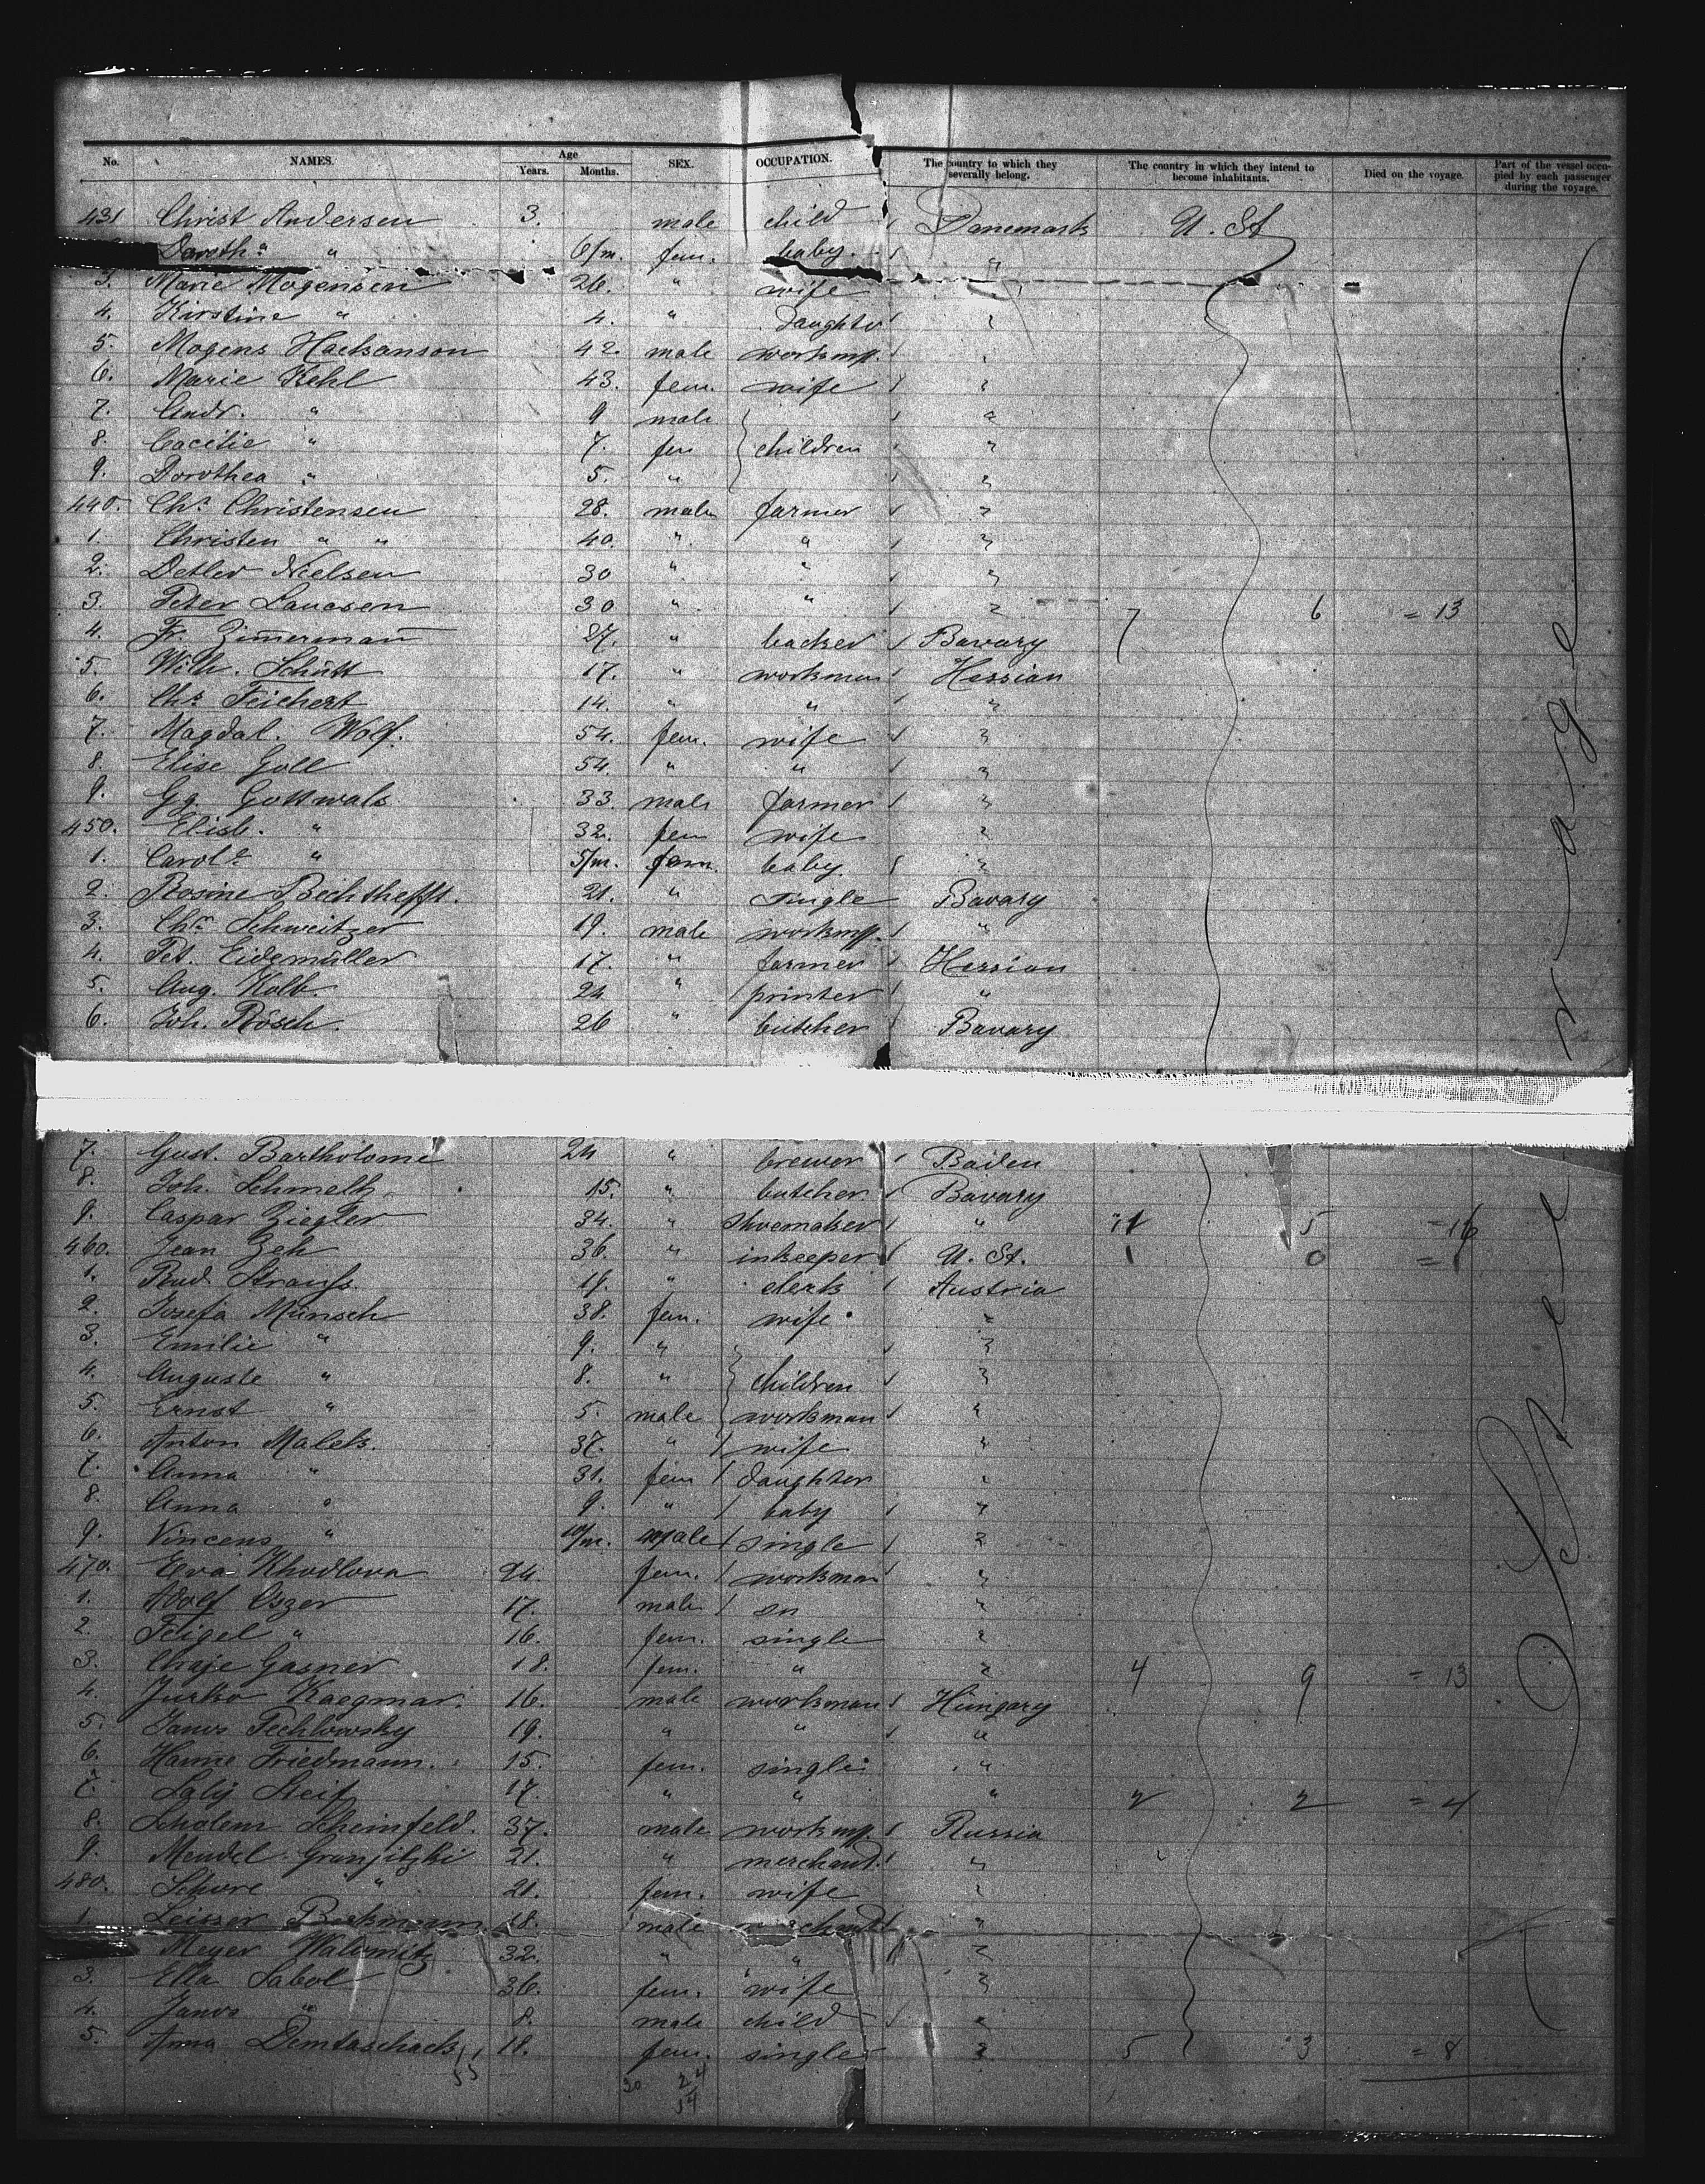 No. NAMES. Age Years. Months. SEX. OCCUPATION. The country to which they severally belong. The country in which they intend to become inhabitants. Died on the voyage. Part of the vessel occupied by each passenger during the voyage.
431 Christ Andersen 3. male child Danemark U. St
Doroth.a " 6/m. fem. baby. "
3. Marie Mogensen 26. " wife
4. Kirstine " 4. " Daughter "
5. Mogens 42. male workm. "
6. Marie Kehl 43. fem. wife "
7. Andr. " 9 male "
8. Cacilie " 7. fem children "
9. Dorothea " 5. " "
440. Chr. Christensen 28. male farmer "
1. Christen " " 40. " " "
2. Detlev Nielsen 30 " " "
3. Peter 30 " " " 7 6 = 13
4. Fr. Zimermann 27. " backer Bavary
5. Wilh. Schütt 17. " workman Hessian
6. Chr. Teichert 14. " " "
7. Magdal. Wolf. 54. fem. wife "
8. Elise Goll 54. " " "
9. Gg. Gottwals 33. male farmer "
450. Elisb. " 32. fem wife "
1. Carole " 5/m. fem. baby. "
2. Rosine 21. " single Bavary
3. Chr. Schweitzer 19. male workm. "
4. Pet. Eidemüller 17. " farmer Hessian
5. Aug. Kolb. 24 " printer "
6. Joh. Rösch. 26 " butcher Bavary
7. Gust. Bartholome 24 " brewer Baden
8. Joh. Schmeltz 15. " butcher Bavary
9. Caspar Ziegler 34. " shoemaker " 11 5 = 16
460. Jean Zeh 36. " inkeeper U. St. 1 0 = 1
1. Rud. Strauss. 19. " clerk Austria
2. Josefa Münsch 38. fem. wife "
3. Emilie " 9. " "
4. Auguste " 8. " children "
5. Ernst " 5. male workman "
6. Anton Malek. 37. " wife "
7. Anna " 31. fem daughter "
8. Anna " 9. " baby "
9. Vincens " 10/m. male single "
470. Eva Khodlova 24. fem. workman "
1. Adolf Eszer 17. male "
2. Feigel " 16. fem. single "
3. Chaje Gasner 18. fem. " " 4 9 = 13
4. Jurko Kaegmar. 16. male workman Hungary
5. Janos Techlowsky 19. " " "
6. Hanne Friedmann. 15. fem. single "
7. Saly Reif 17. " " " 2 2 = 4
8. Scholem Scheinfeld. 37. male workm. Russia
9. Mendel Granjitzki 21. " merchand. "
480. Schore " 21. fem. wife "
1. Leisser Berkmann 18. male merchand "
Meyer Walomitz 32. " " "
3. Ella Sabol 36. fem. wife "
4. Janos " 8. male child "
5. Anna Demtaschack 18. fem. single " 5 3 = 8
30 24
54